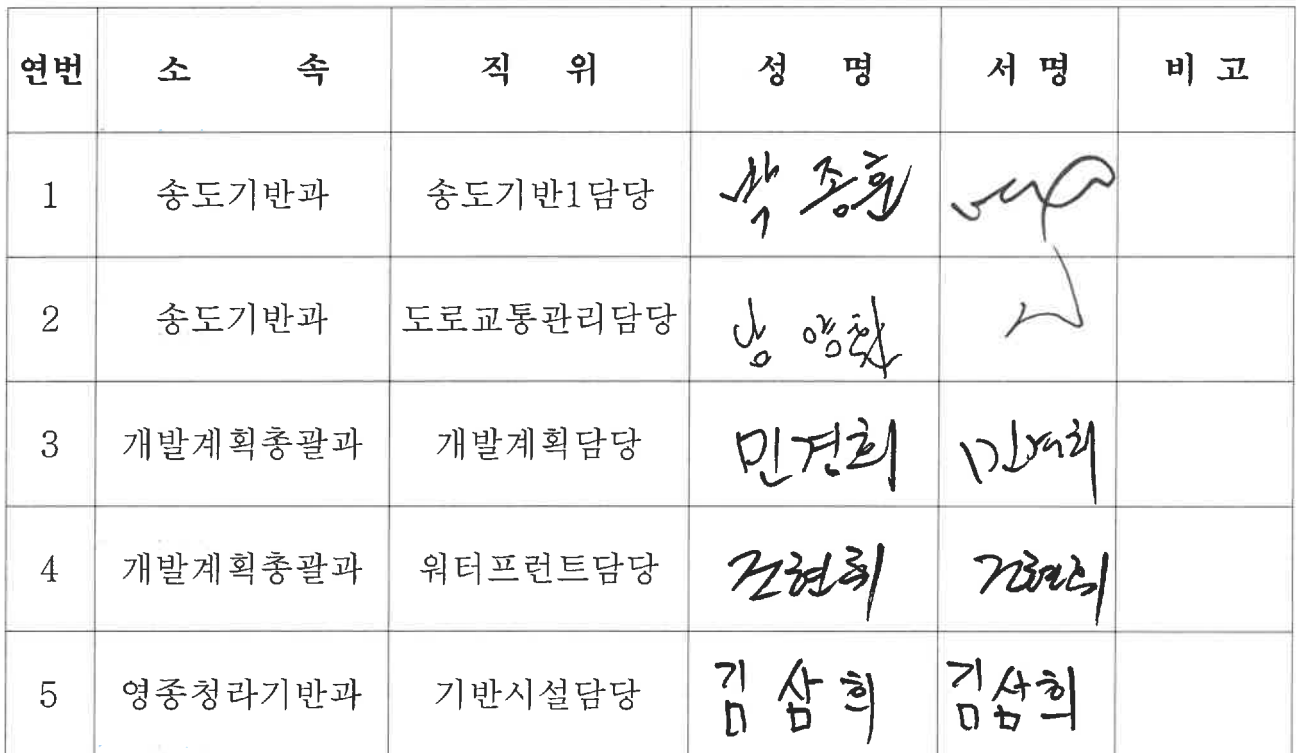 연번 소 속 직 위 성 명 서 명 비 고
1 송도기반과 송도기반1담당 박종훈
2 송도기반과 도로교통관리담당
3 개발계획총괄과 개발계획담당 민경희 민경희
4 개발계획총괄과 워터프런트담당
5 영종청라기반과 기반시설담당 김삼희 김삼희